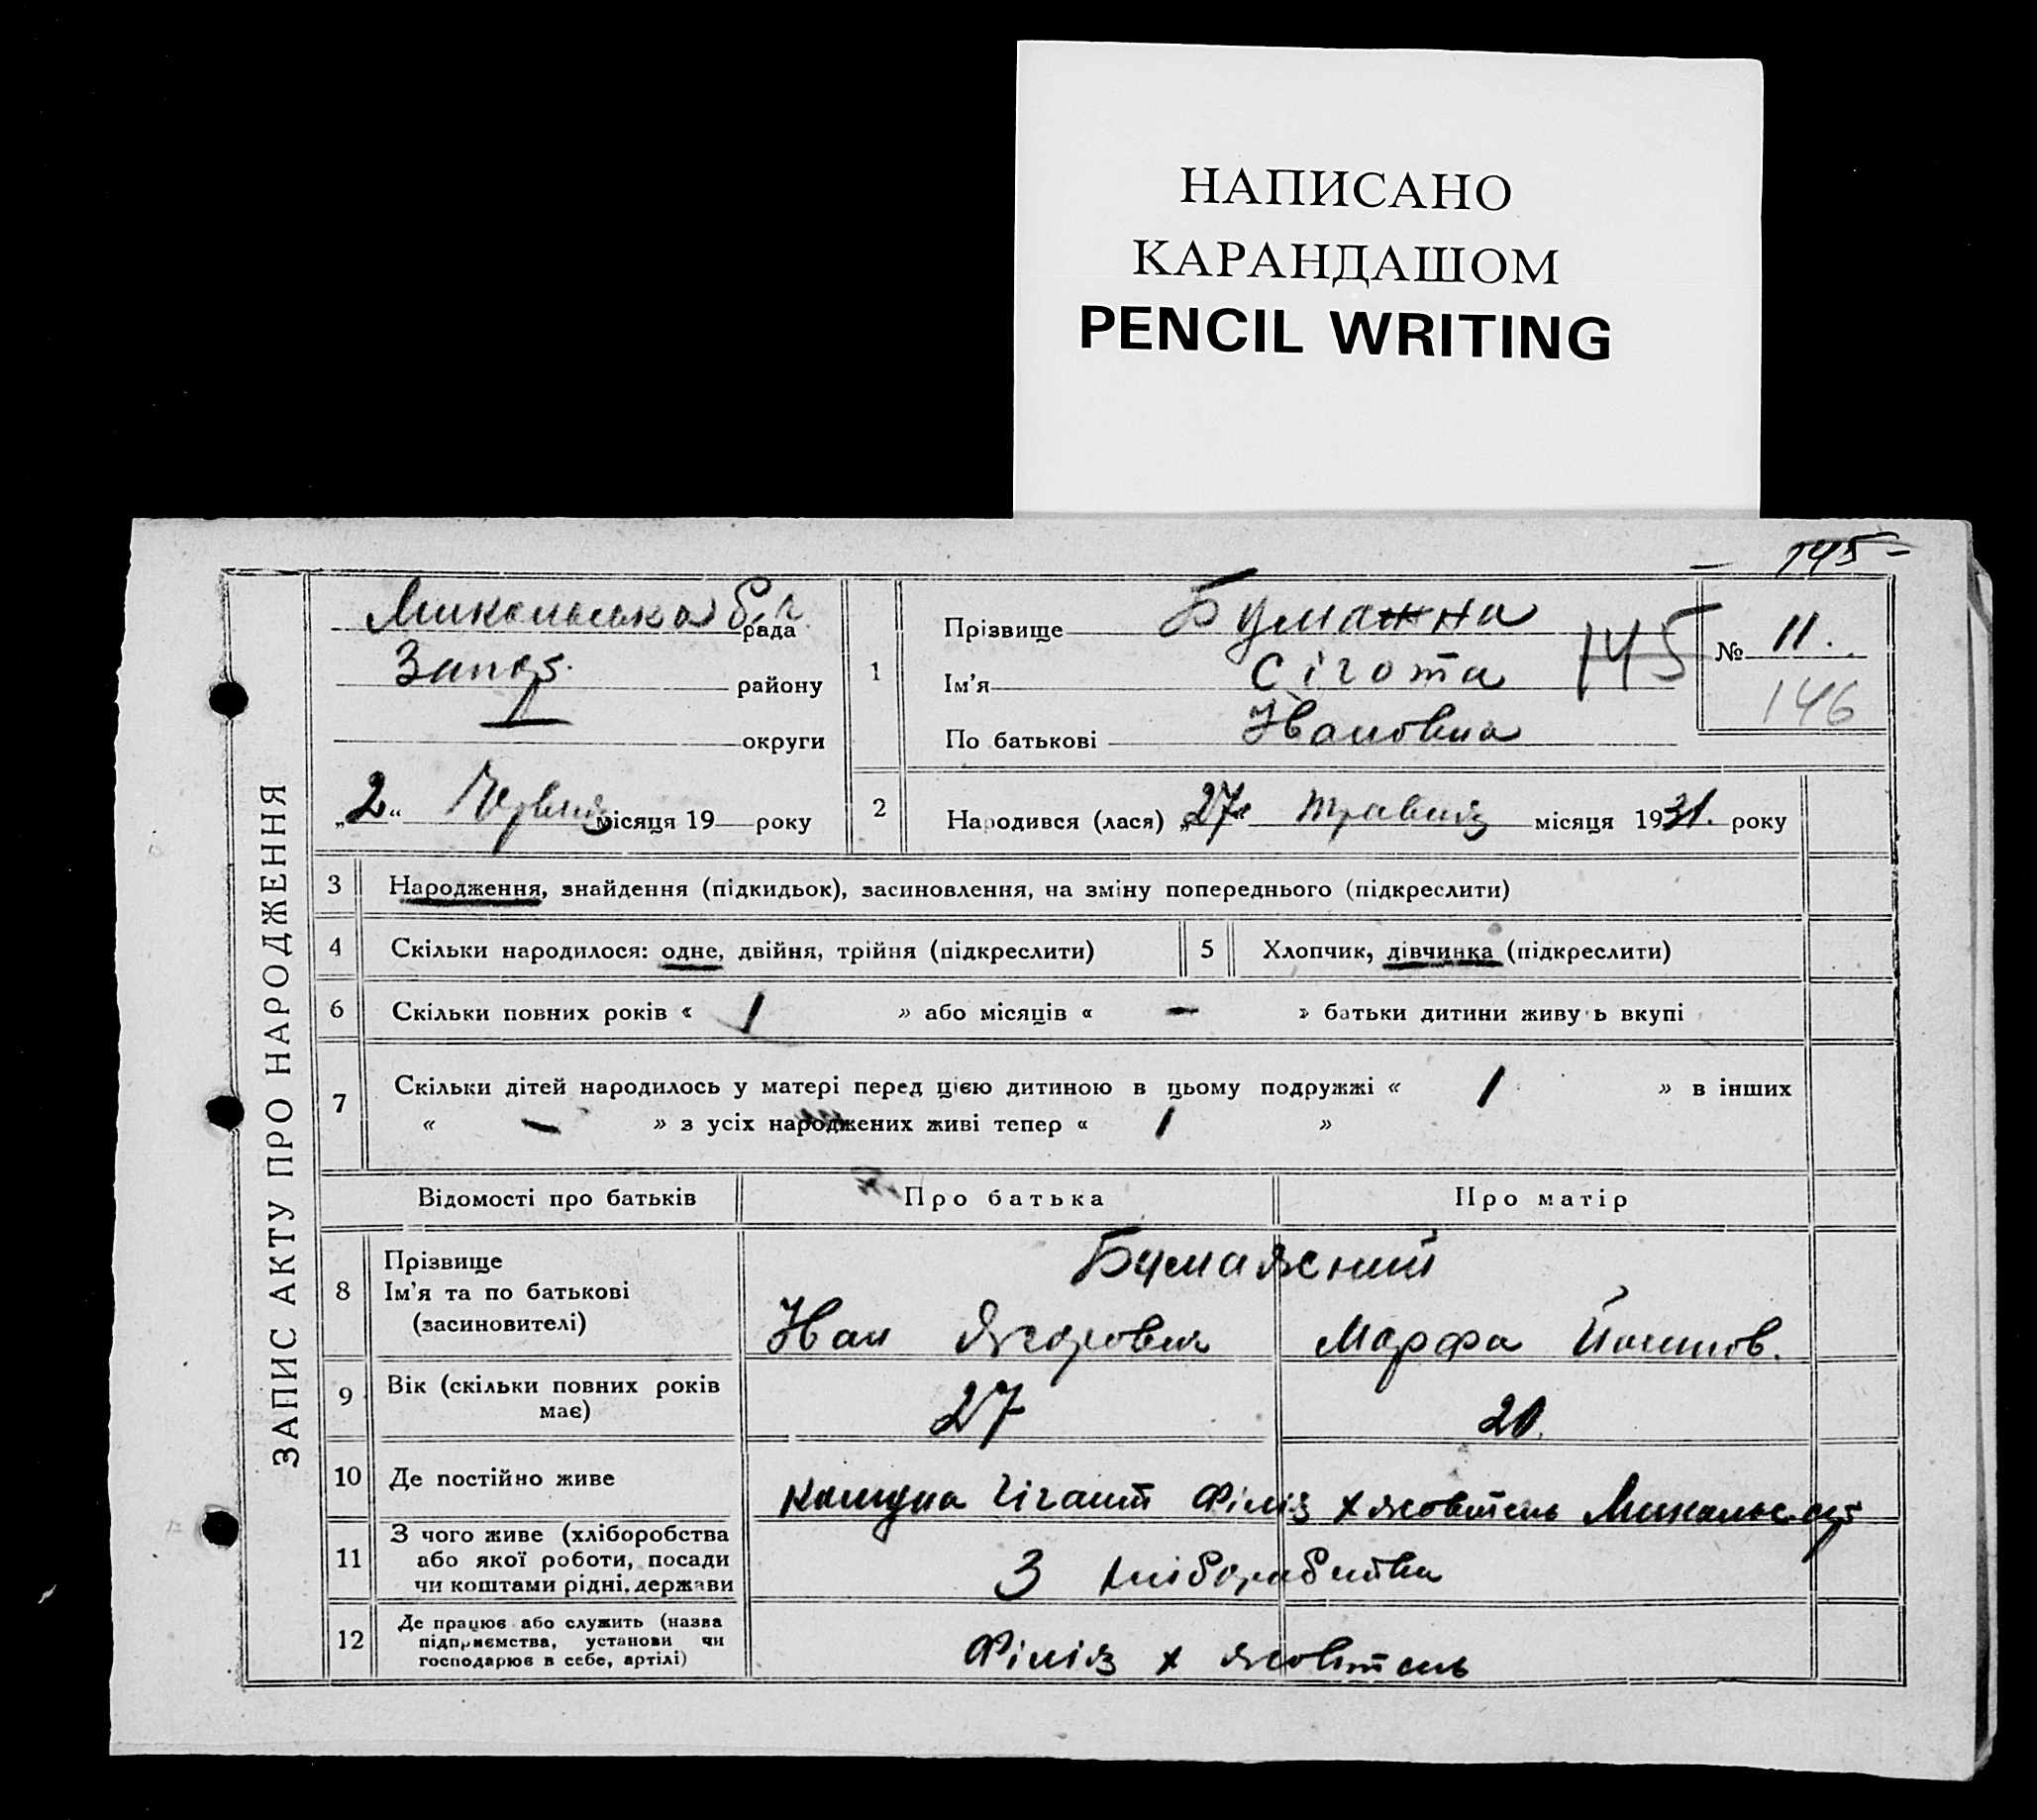 НАПИСАНО
КАРАНДАШОМ
PENCIL WRITING
145
ЗАПИС АКТУ ПРО НАРОДЖЕННЯ
рада
Запоз. району
округи
„2“ Червня місяця 19 року
1
Прізвище Бумажна
Ім’я Сігота
По батькові Івановна
145
№ 11.
146
2 Народився (лася) „27“ травня місяця 1931. року
3 Народження, знайдення (підкидьок), засиновлення, на зміну попереднього (підкреслити)
4 Скільки народилося: одне, двійня, трійня (підкреслити) 5 Хлопчик, дівчинка (підкреслити)
6 Скільки повних років « 1 » або місяців « — » батьки дитини живу ь вкупі
7 Скільки дітей народилось у матері перед цією дитиною в цьому подружжі « 1 » в інших
« — » з усіх народжених живі тепер « 1 »
Відомості про батьків Про батька Про матір
8 Прізвище
Ім’я та по батькові
(засиновителі)
Бумажний
Іван Марфа
9 Вік (скільки повних років
має)
27 20
10 Де постійно живе
Комуна Гігант Філія
11 З чого живе (хліборобства
або якої роботи, посади
чи коштами рідні, держави
З хліборобства
12 Де працює або служить (назва
підприємства, установи чи
господарює в себе, артілі)
Філія